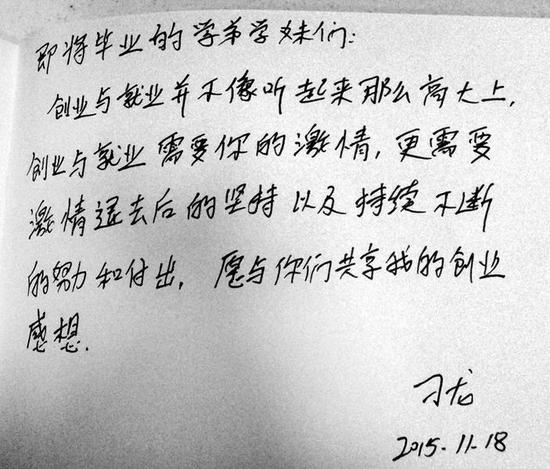 即将毕业的学弟学妹们:
创业与就业并不像听起来那么高大上,
创业与就业需要你的激情,更需要
激情退去后的坚持以及持续不断
的努力和付出,愿与你们共享我的创业
感想.
刁龙
2015.11.18